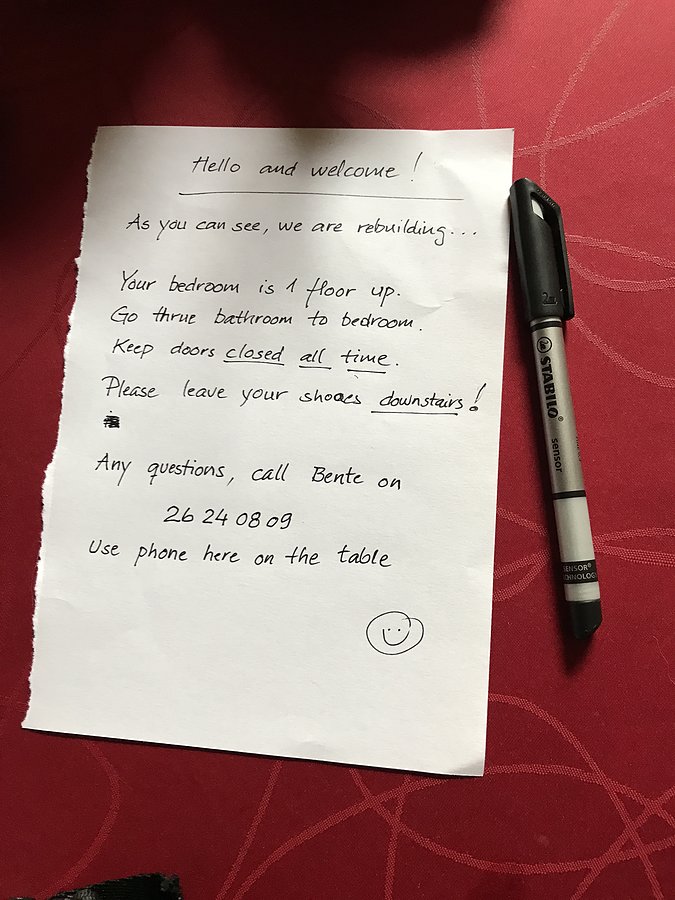 Hello and welcome!
As you can see, we are rebuilding...
Your bedroom is 1 floor up.
Go thrue bathroom to bedroom.
Keep doors closed all time.
Please leave your shoes downstairs!
Any questions, call Bente on
26 24 08 09
Use phone here on the table
STABILO®
sensor
SENSOR®
TECHNOLOGY